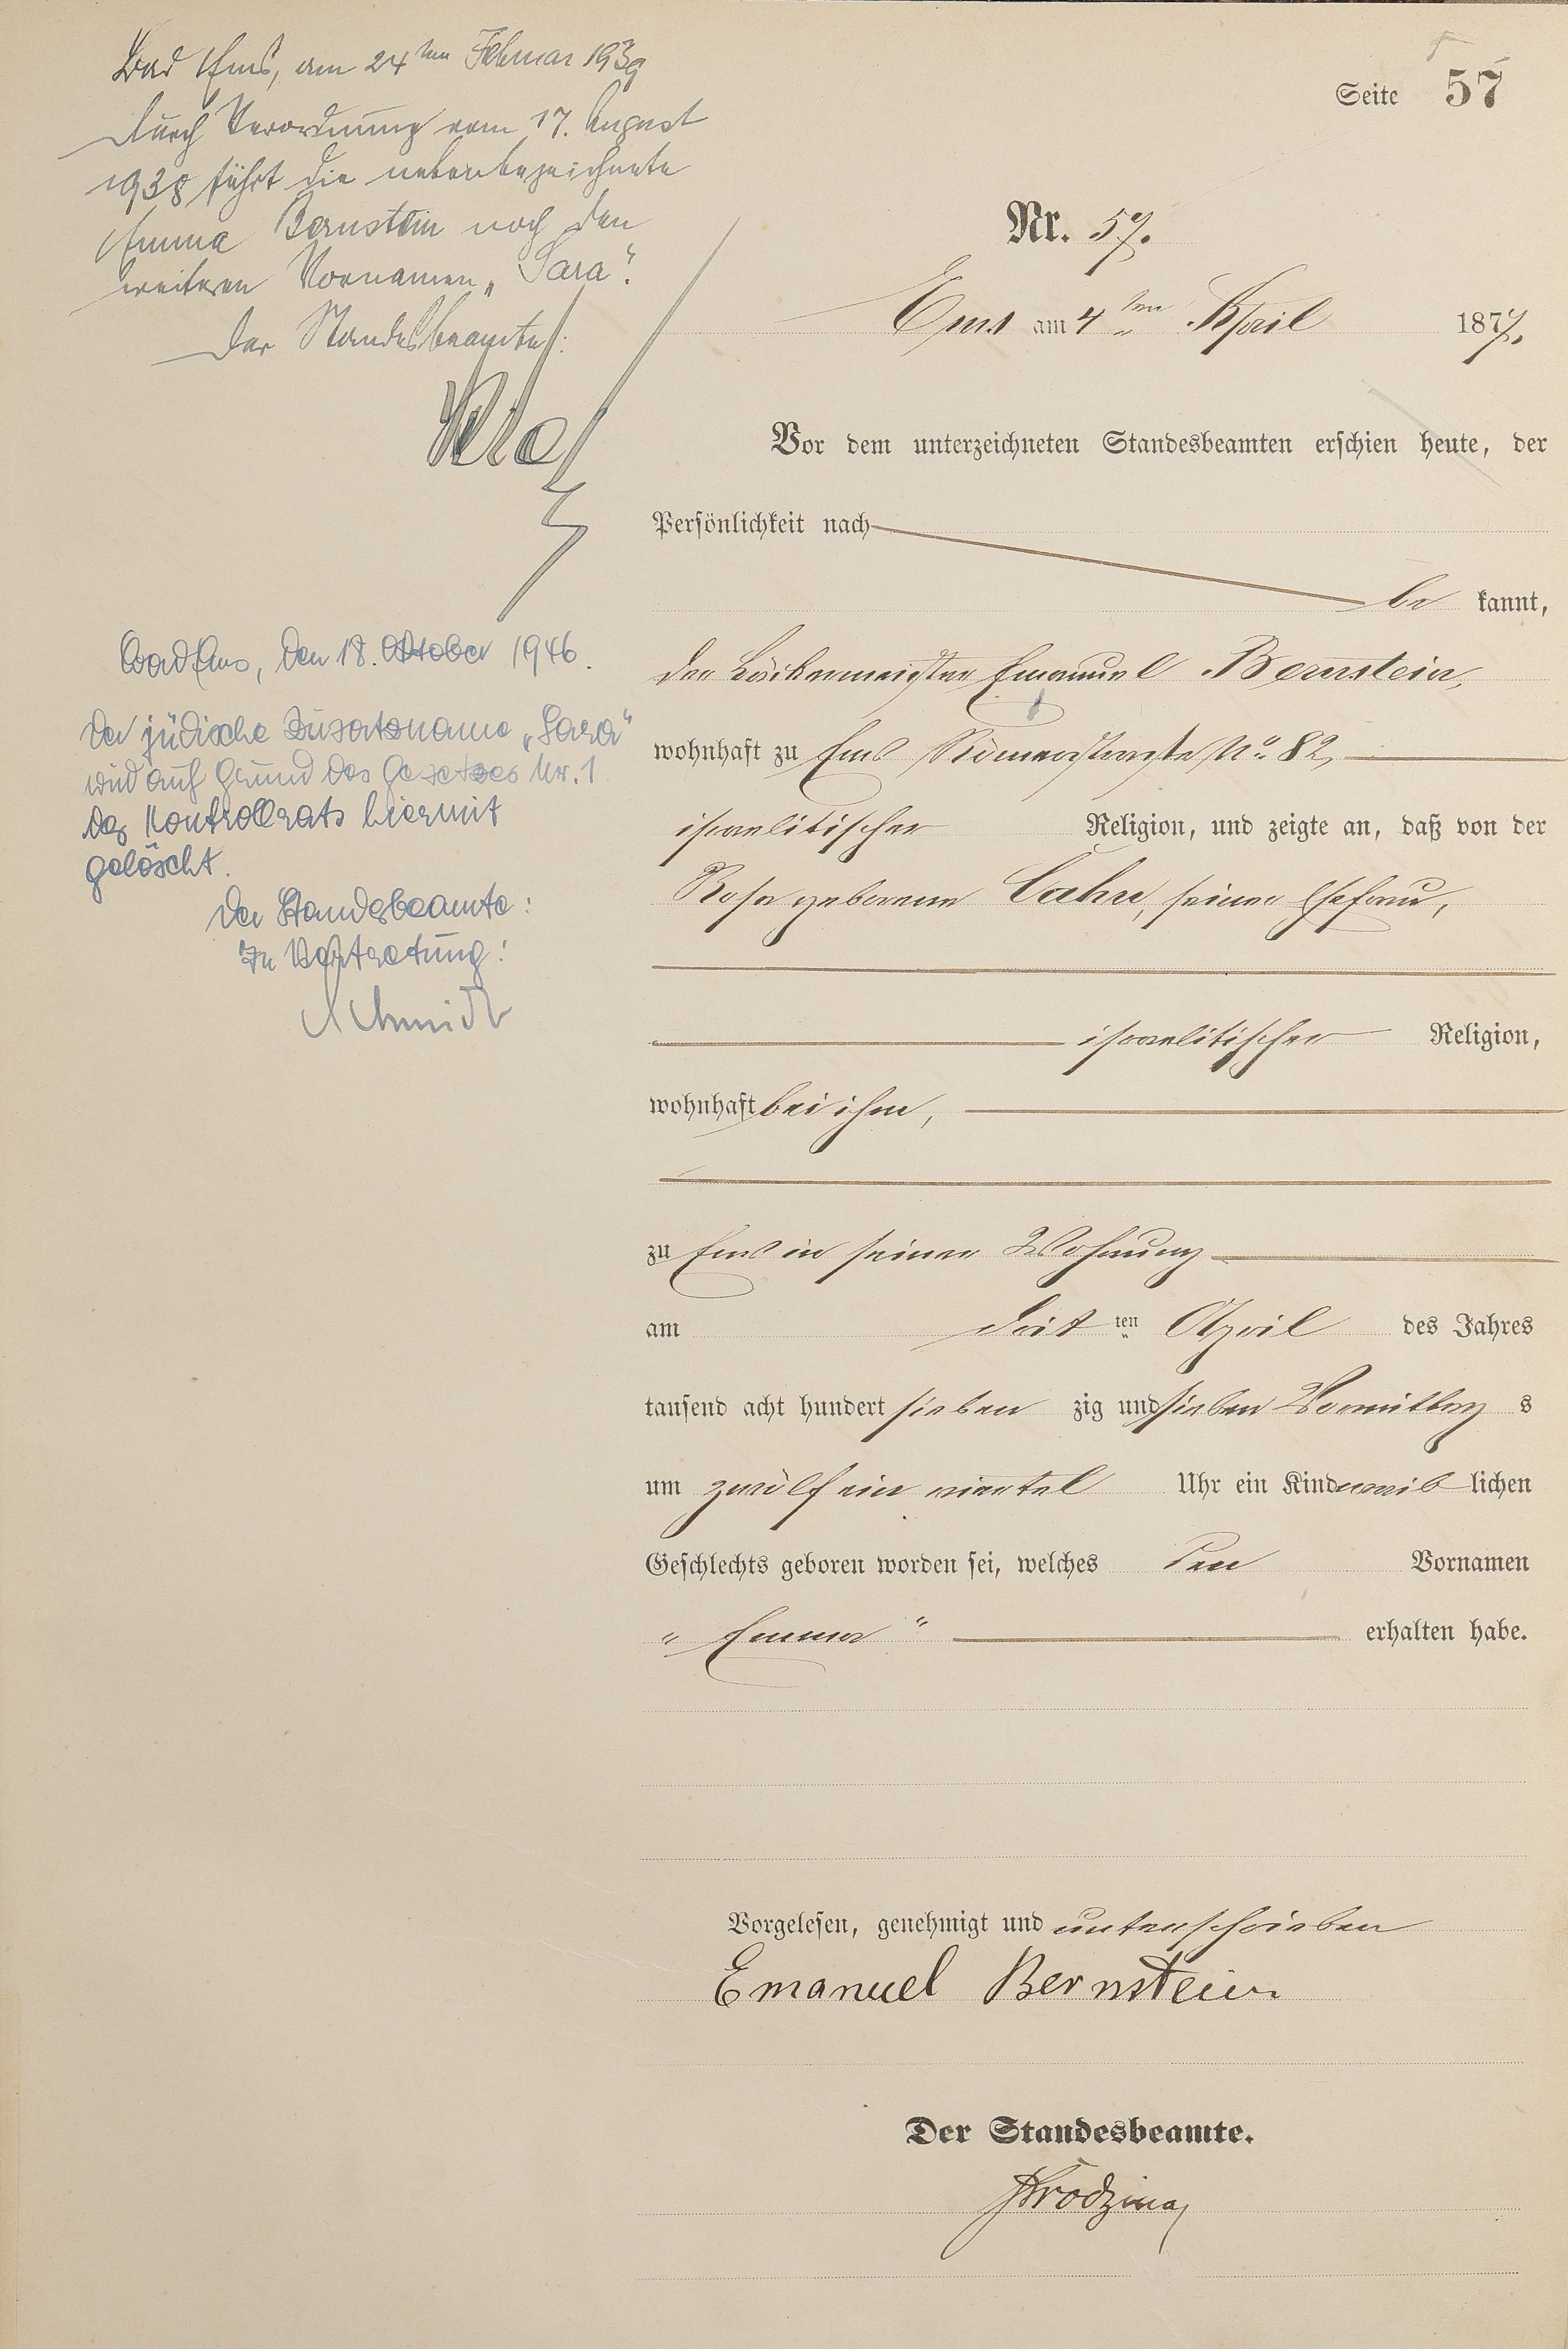 Bad Ems, am 24ten Februar 1939
Durch Verordnung vom 17. August
1938 führt die nebenbezeichnete
Emma Bernstein noch den
weiteren Vornamen „Sara“.
Der Standesbeamte:
Bad Ems, den 18. Oktober 1946.
Der jüdische Zusatzname „Sara“
wird auf Grund des Gesetzes Nr. 1
des Kontrollrats hiermit
gelöscht.
Der Standesbeamte:
In Vertretung:
Schmidt
Seite 57
Nr. 57.
Ems am 4ten April 1877.
Vor dem unterzeichneten Standesbeamten erschien heute, der
Persönlichkeit nach
be kannt,
der Bäckermeister Emanuel Bernstein,
wohnhaft zu Ems Römerstraße No. 82,
israelitischer Religion, und zeigte an, daß von der
Rosa geborene Cahn, seiner Ehefrau,
israelitischer Religion,
wohnhaft bei ihm,
zu Ems in seiner Wohnung
am drit ten April des Jahres
tausend acht hundert sieben zig und sieben Vormittag s
um zwölf ein viertel Uhr ein Kind weib lichen
Geschlechts geboren worden sei, welches den Vornamen
„Emma“ erhalten habe.
Vorgelesen, genehmigt und unterschrieben
Emanuel Bernstein
Der Standesbeamte.